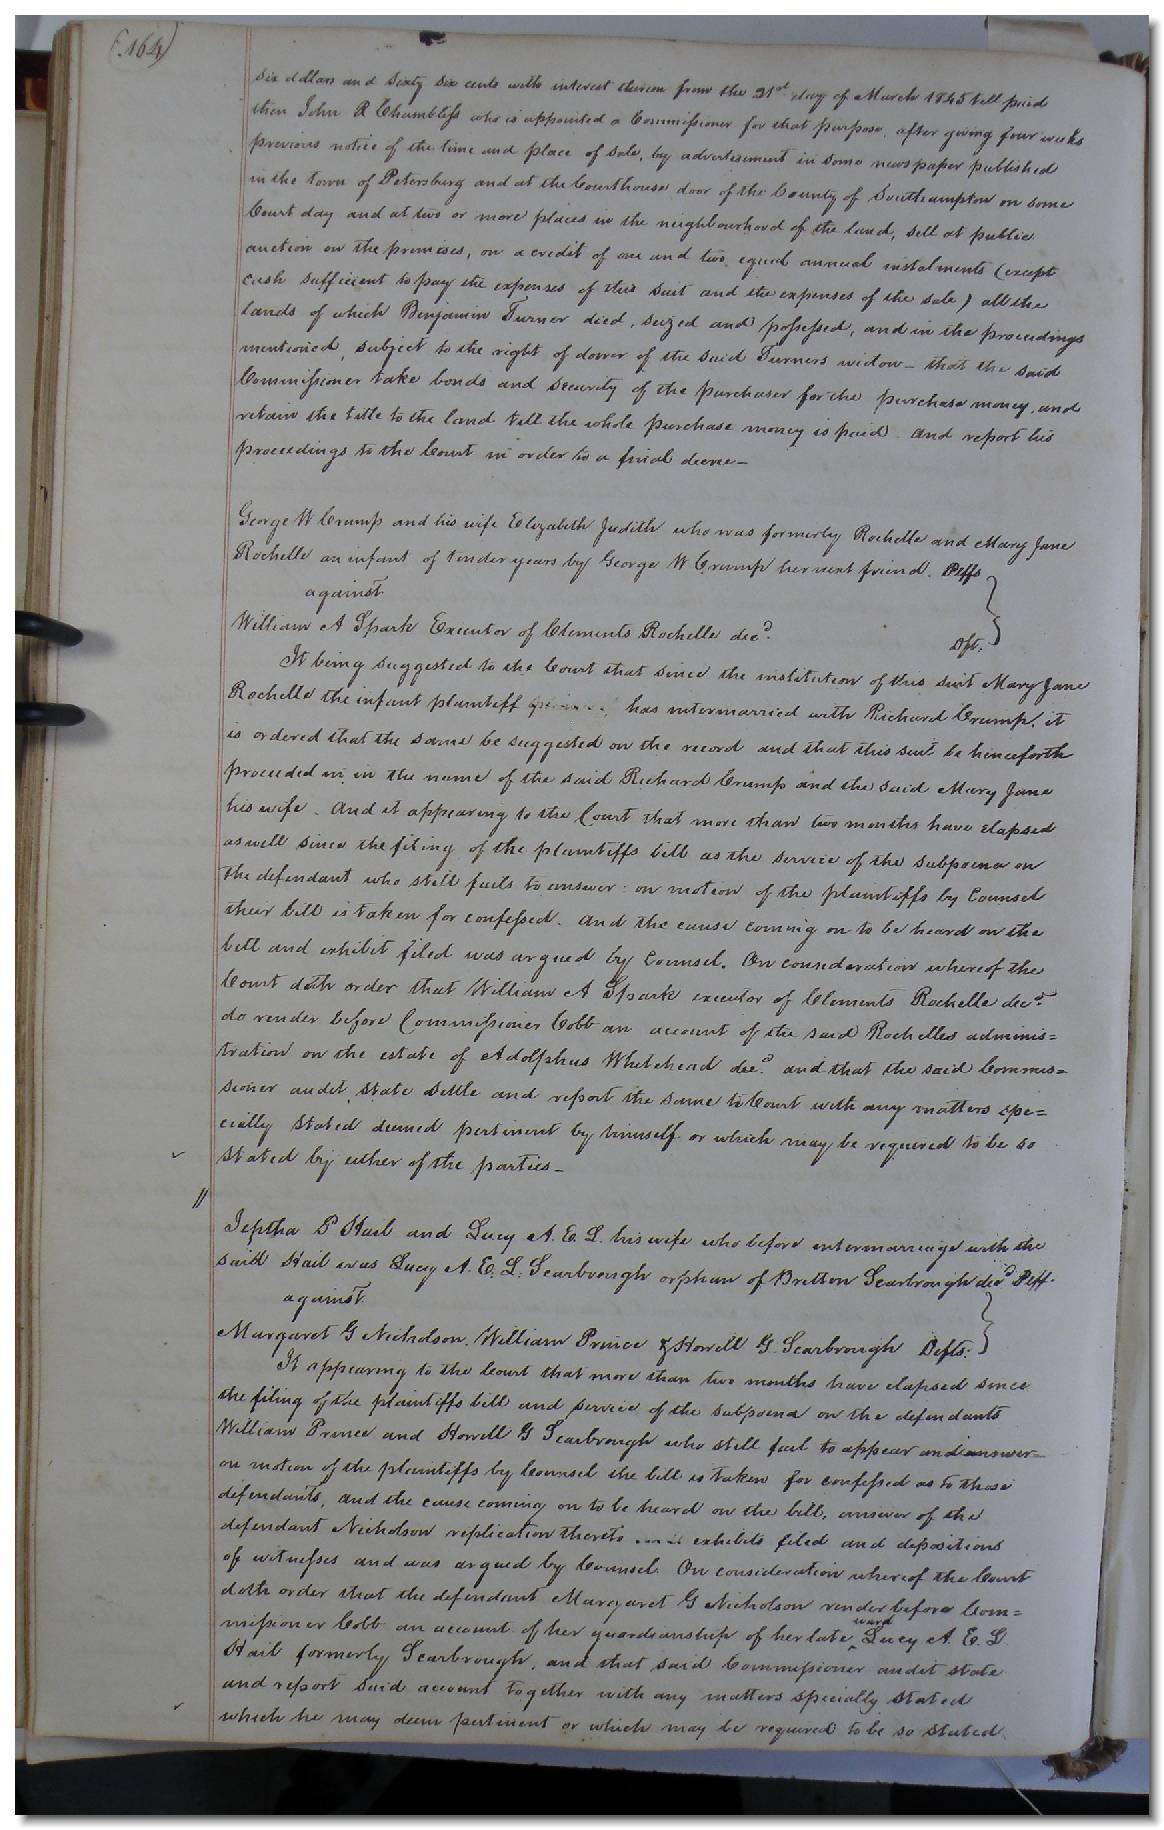 (164)
six dollars and sixty six cents with interest thereon from the 21st day of March 1845 till paid
then John R Chambliss who is appointed a Commissioner for that purpose, after giving four weeks
previous notice of the time and place of sale, by advertisement in some newspaper published
in the town of Petersburg and at the Courthouse door of the County of Southampton on some
Court day and at two or more places in the neighbourhood of the land, sell at public
auction on the premises, on a credit of one and two equal annual instalments (except
cash sufficient to pay the expenses of this suit and the expenses of the sale) all the
lands of which Benjamin Turner died, seized and possessed, and in the proceedings
mentioned, subject to the right of dower of the said Turners widow - that the said
Commissioner take bonds and security of the purchaser for the purchase money, and
retain the title to the land till the whole purchase money is paid and report his
proceedings to the Court in order to a final decree -
George W Crump and his wife Elizabeth Judith who was formerly Rochelle and Mary Jane
Rochelle an infant of tender years by George W Crump her next friend. Plffs
against
William A Spark Executor of Clements Rochelle decd. Dft.
It being suggested to the Court that since the institution of this suit Mary Jane
Rochelle the infant plaintiff has intermarried with Richard Crump, it
is ordered that the same be suggested on the record and that this suit be henceforth
proceeded in in the name of the said Richard Crump and the said Mary Jane
his wife. And it appearing to the Court that more than two months have elapsed
as well since the filing of the plaintiffs bill as the service of the subpoena on
the defendant who still fails to answer: on motion of the plaintiffs by Counsel
their bill is taken for confessed. And the cause coming on to be heard on the
bill and exhibit filed was argued by Counsel. On consideration whereof the
Court doth order that William A Spark executor of Clements Rochelle decd.
do render before Commissioner Cobb an account of the said Rochelles adminis=
tration on the estate of Adolphus Whitehead decd. and that the said Commis=
sioner audit, state settle and report the same to Court with any matters spe=
cially stated deemed pertinent by himself or which may be required to be so
stated by either of the parties -
Jeptha P Hail and Lucy A. E. L. his wife who before intermarriage with the
said Hail was Lucy A. E. L. Scarbrough orphan of Britton Scarbrough decd Plff.
against
Margaret G Nicholson, William Prince & Howell G. Scarbrough Defts.
It appearing to the Court that more than two months have elapsed since
the filing of the plaintiffs bill and service of the subpoena on the defendants
William Prince and Howell G Scarbrough who still fail to appear and answer -
on motion of the plaintiffs by Counsel the bill is taken for confessed as to those
defendants, and the cause coming on to be heard on the bill, answer of the
defendant Nicholson replication thereto exhibits filed and depositions
of witnesses and was argued by Counsel. On consideration whereof the Court
doth order that the defendant Margaret G Nicholson render before Com=
missioner Cobb an account of her guardianship of her late ^ward Lucy A. E. L.
Hail formerly Scarbrough, and that said Commissioner audit state
and report said account together with any matters specially stated
which he may deem pertinent or which may be required to be so stated